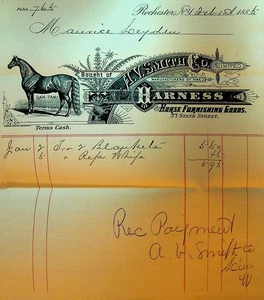 Rochester, N.Y. Feb 1st 1885
Maurice Leyden
Bought of A.V. SMITH & Co. LIMITED
MANUFACTURERS OF
HARNESS
AND
HORSE FURNISHING GOODS.
57 STATE STREET.
Terms Cash.
Jan 2 2 Blankets 5 50
5 Rep Whip 45
5 95
Rec Payment
A. V. Smith Co